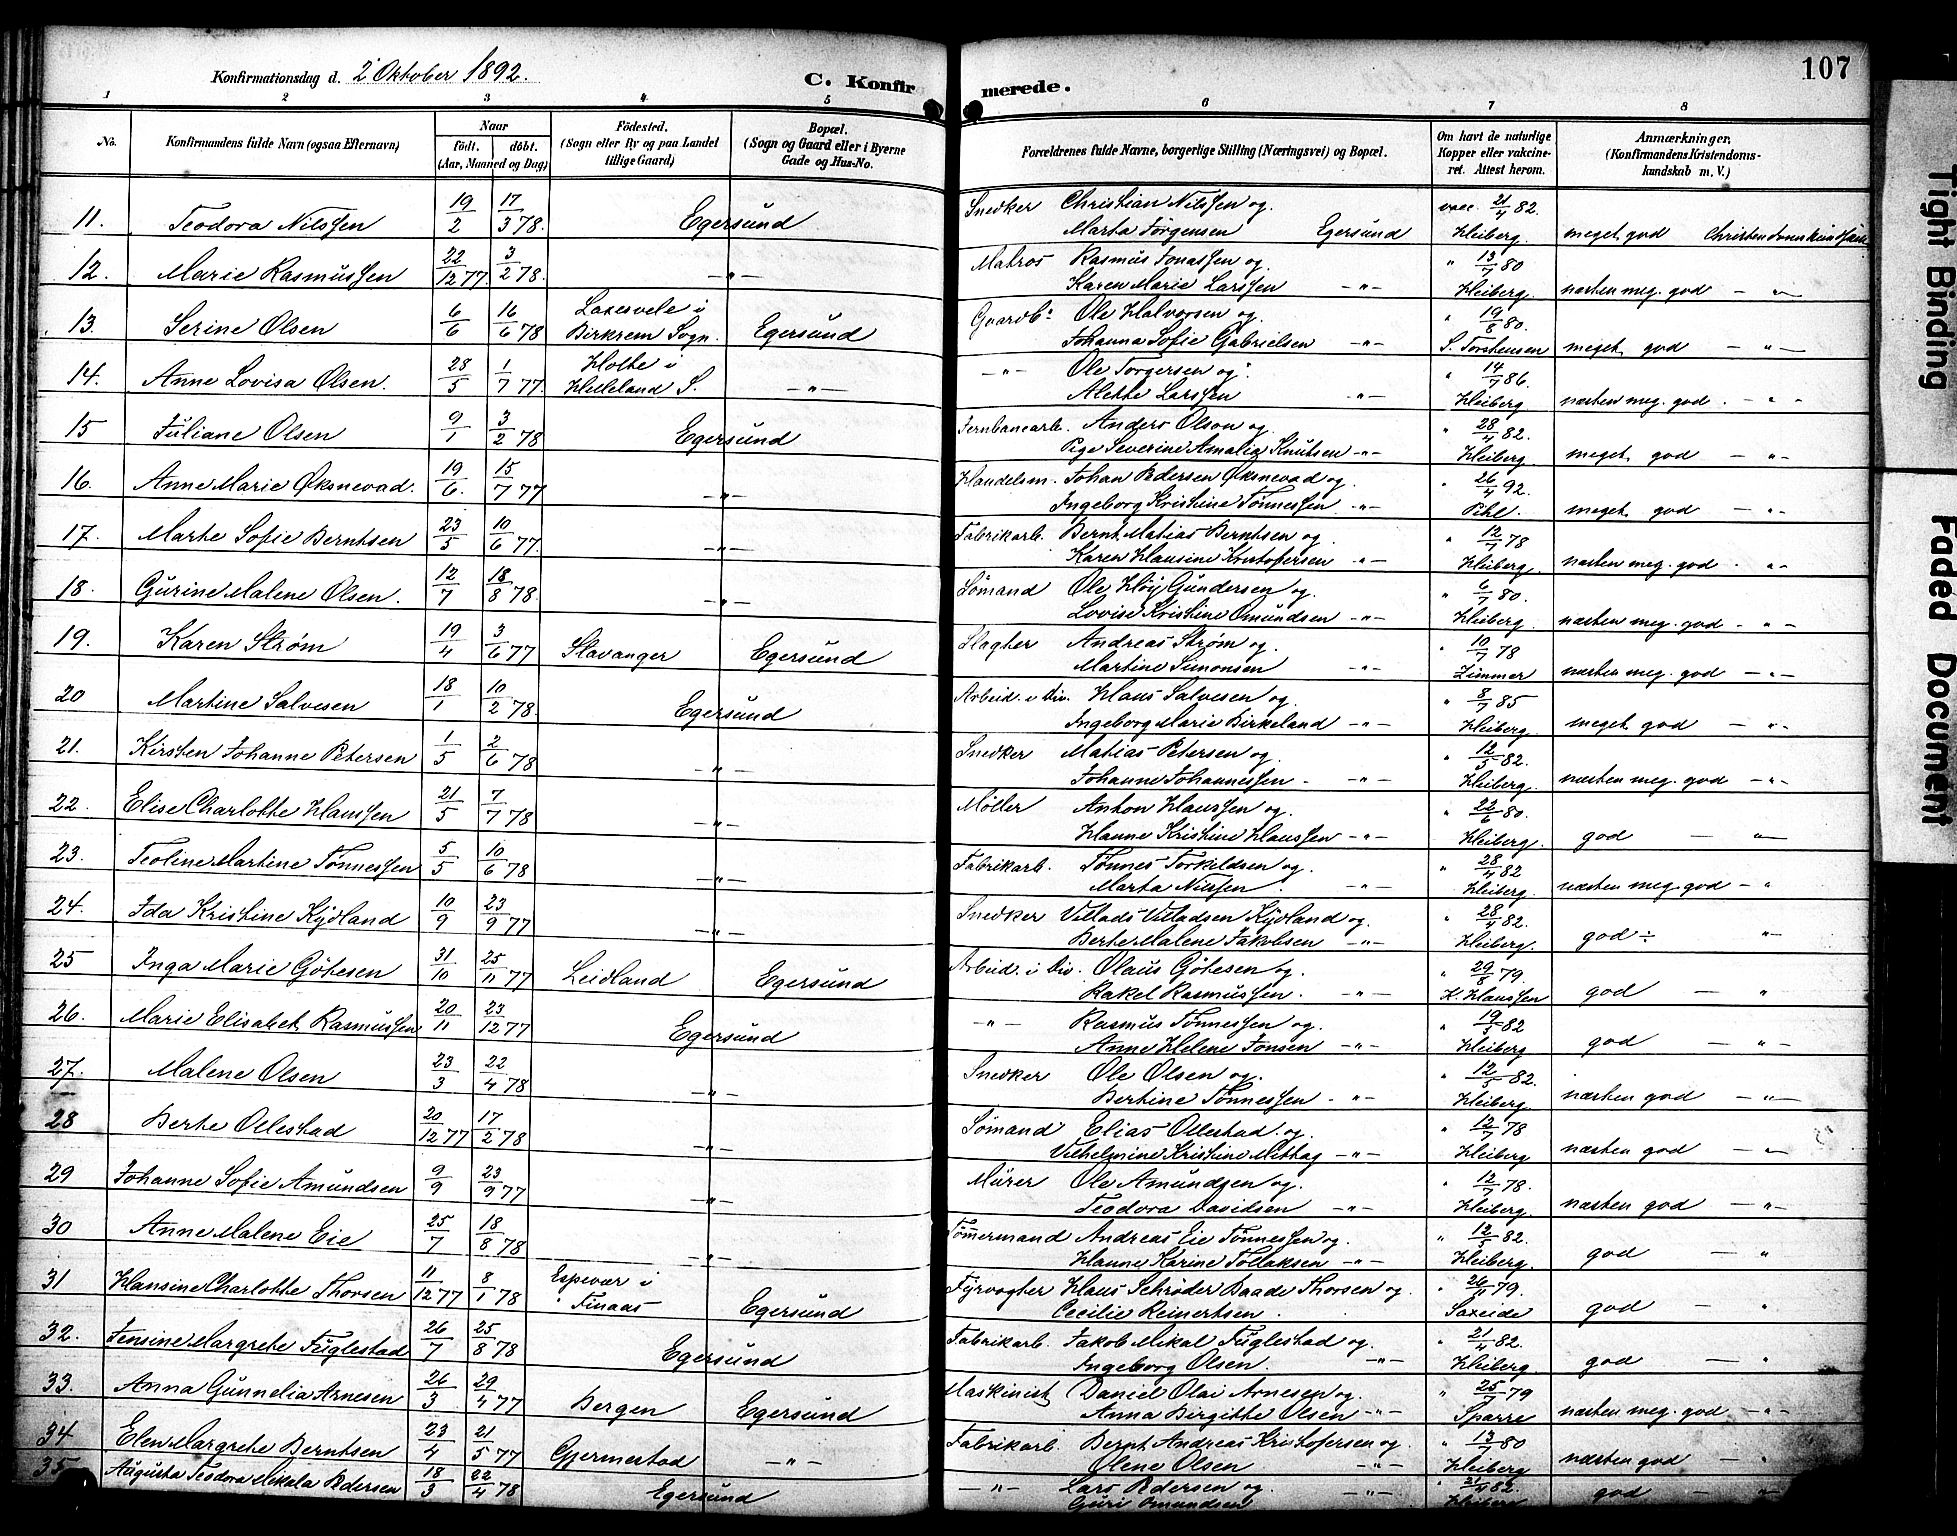 Konfirmationsdag d. 2 Oktober 1892.
C. Konfirmerede.
107
1 2 3 4 5 6 7 8
No.
Konfirmandens fulde Navn (ogsaa Efternavn)
Naar
født. døbt.
(Aar, Maaned og Dag)
Fødested.
(Sogn eller By og paa Landet
tillige Gaard)
Bopæl.
(Sogn og Gaard eller i Byerne
Gade og Hus-No.
Forældrenes fulde Navne, borgerlige Stilling (Næringsvei) og Bopæl.
Om havt de naturlige
Kopper eller vakcine-
ret. Attest herom.
Anmærkninger,
(Konfirmandens Kristendoms-
kundskab m. V.)
11. Teodora Nilssen 19/2 17/3 78. Egersund Snedker Christian Nilssen og vacc. 21/4 82.
Marta Jørgensen Egersund Kleiberg. meget god Christendomskundskab
12. Marie Rasmussen 22/12 77. 3/2 78. —"— Matros Rasmus Jonassen og " 13/7 80
Karen Marie Larssen —"— Kleiberg. næsten meg. god —"—
13. Serine Olsen 6/6 16/6 78 Laxesvele i Birkrem Sogn. Egersund Gaardb. Ole Halvorsen og " 19/8 80.
Johanna Sofie Gabrielsen —"— S. Torstensen meget god —"—
14. Anne Lovisa Olsen. 28/5 1/7 77. Holte i Helleland S. —"— —"— Ole Torgersen og " 14/7 86.
Alette Larssen —"— Kleiberg næsten meg. god. —"—
15 Juliane Olsen 9/1 3/2 78 Egersund Jernbanearb. Anders Olson og " 28/4 82.
Pige Severine Amalia Knutsen —"— Kleiberg. meget god —"—
16. Anne Marie Øksnevad. 19/6. 15/7 77 —"— Handelsm. Johan Pedersen Øksnevad og " 26/4 92.
Ingeborg Kristine Tønnessen. —"— Pihl. meget god —"—
17. Marte Sofie Berntsen 23/5 10/6 77. —"— Fabrikarb. Bernt Matias Berntsen og " 12/7 78
Karen Hansine Kristofersen —"— Kleiberg. næsten meg. god. —"—
18. Gurine Malene Olsen. 12/7 18/8 78. —"— Sømand Ole Høij Gundersen og. " 6/7 80.
Lovise Kristine Omundsen —"— Kleiberg. næsten meg. god —"—
19. Karen Strøm 19/4 3/6 77 Stavanger Egersund Slagter Andreas Strøm og " 10/7 78
Martine Simonsen —"— Zimmer næsten meg. god —"—
20 Martine Salvesen 18/1 10/2 78. Egersund Arbeid. i Div. Hans Salvesen og " 8/7 85
Ingeborg Marie Birkeland —"— Kleiberg. meget god —"—
21. Kirsten Johanne Petersen 1/5 2/6 78 —"— Snedker Matias Petersen og " 12/5 82.
Johanne Johannessen. —"— Kleiberg. næsten meg. god —"—
22. Elise Charlotte Hanssen 21/5 7/7 78 —"— Møller Anton Hanssen og " 22/6 80.
Hanne Kristine Hanssen —"— Kleiberg. god —"—
23. Teoline Martine Tønnessen 5/5 10/6 78 —"— Fabrikarb. Tønnes Torkildsen og. " 28/4 82
Marta Nilssen. —"— Kleiberg. næsten meg. god —"
24. Ida Kristine Kydland 10/9 23/9 77 —"— Snedker Villads Villadsen Kydland og " 28/4 82.
Berte Malene Jakobsen —"— Kleiberg. god ÷ "
25 Inga Marie Gøtesen 31/10 25/11 77 Leidland Egersund Arbeid. i Div. Olaus Gøtesen og " 29/8 79
Rakel Rasmussen. —"— K. Hanssen god — "
26. Marie Elisabet Rasmussen 20/11 23/12 77 Egersund —"— Rasmus Tønnessen og. " 19/5 82
Anne Helene Jonsen —"— Kleiberg god —"—
27. Malene Olsen 23/3 22/4 78 —"— Snedker Ole Olsen og. " 12/5 82.
Bertine Tønnessen —"— Kleiberg. næsten god —"—
28 Berte Ollestad 20/12 77 17/2 78 —"— Sømand Elias Ollestad og. " 12/7 78
Vilhelmine Kristine Mittag —"— Kleiberg næsten god —"—
29 Johanne Sofie Amundsen 9/9 23/9 77 —"— Murer Ole Amundsen og. " 12/7 78.
Teodora Davidsen —"— Kleiberg. næsten god —"—
30 Anne Malene Eie 25/7 18/8 78 —"— Tømmermand Andreas Eie Tønnessen og. " 12/5 82.
Hanne Karine Tollaksen —"— Kleiberg. god — "
31 Hansine Charlotte Thorsen 11/12 77 8/1 78 Espevær i Finaas Egersund Fyrvogter Hans Schrøder Baade Thorsen og. " 26/11 79.
Cecilie Reinertsen. Saxeide god — "
32. Jensine Margrete Fuglestad 26/7 25/8 78 Egersund Fabrikarb. Jakob Mikal Fuglestad og. " 21/4 82.
Ingeborg Olsen. —"— Kleiberg. god — "
33. Anna Gunnelia Arnesen 26/3 29/4 77 Bergen Egersund Maskinist Daniel Olai Arnesen og. " 25/7 79
Anna Birgitte Olsen —"— Sparre næsten meg. god —"—
34 Elen Margrete Berntsen 23/4 21/5 77 Gjermestad —"— Fabrikarb. Bernt Andreas Kristofersen og. " 13/7 80
Olene Olsen —"— Kleiberg næsten god —"—
35 Augusta Teodora Mikala Pedersen 18/3 22/4 78 Egersund —"— Lars Pedersen og " 21/4 82.
Guri Omundsen —"— Kleiberg god — "
Tight Binding
Faded Document